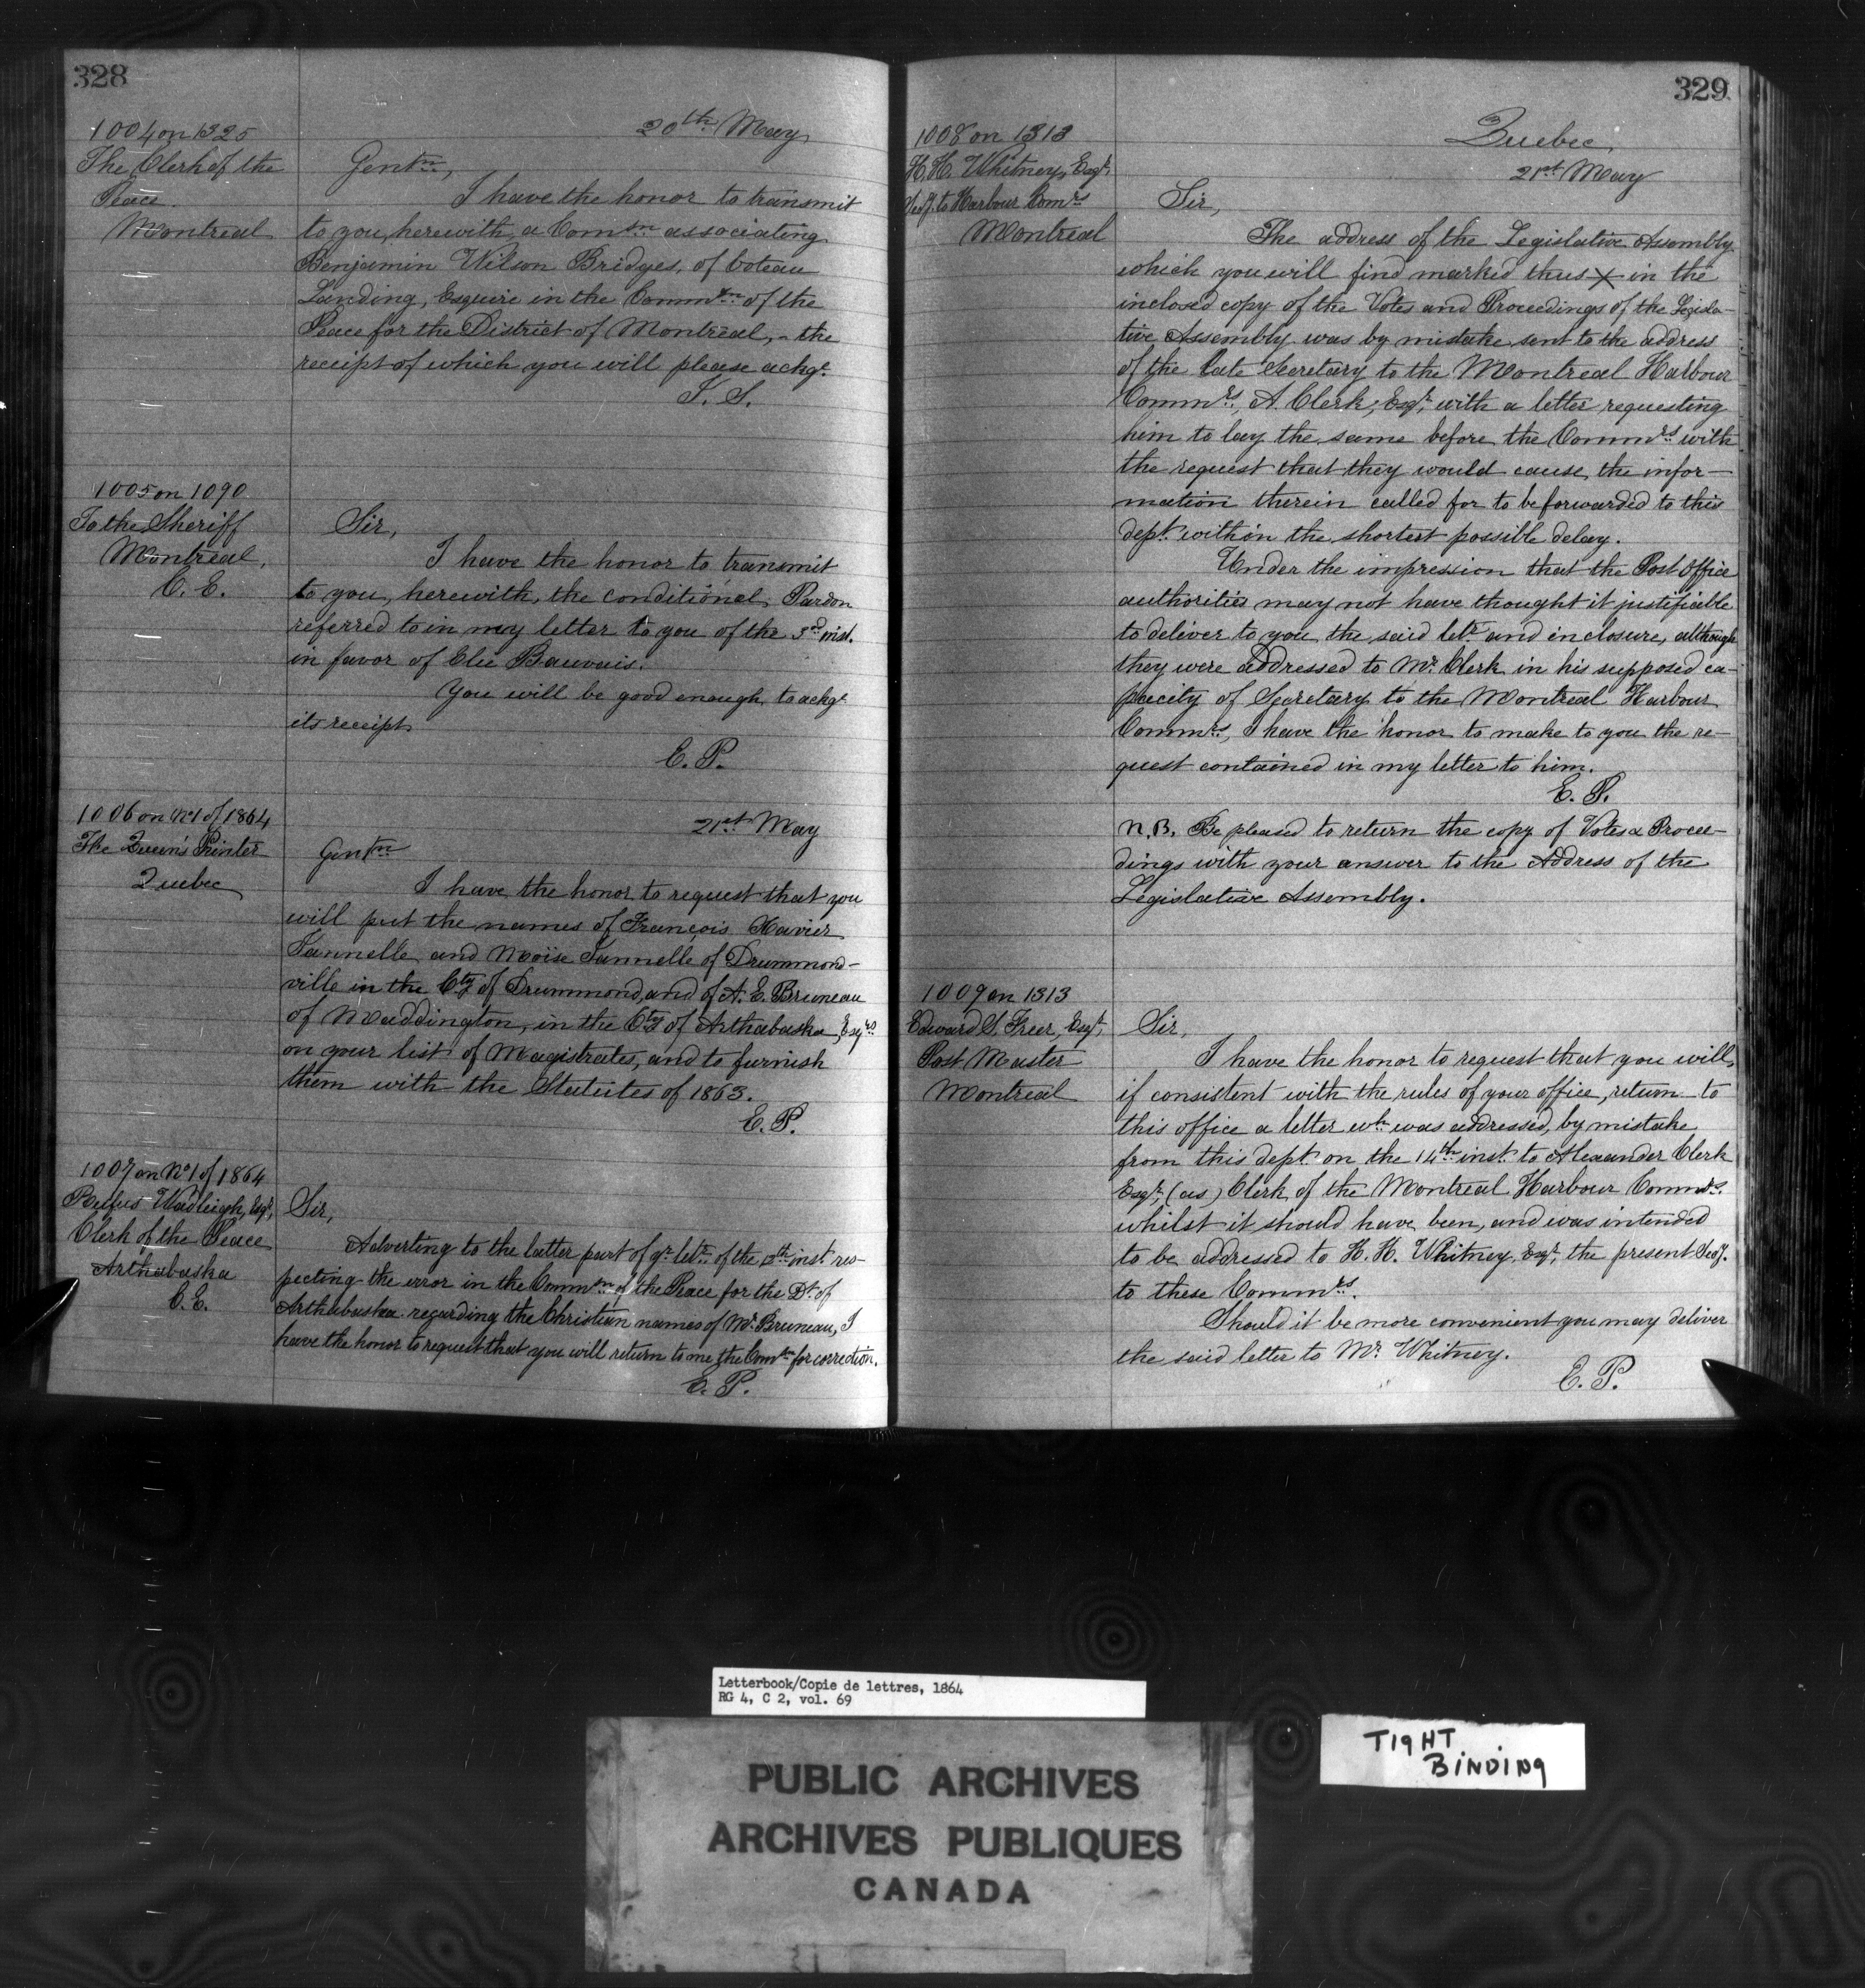 328
1004 on 1325
The Clerk of the
Peace.
Montreal
20th May
Gentn,
I have the honor to transmit
to you, herewith, a Comn associating
Benjamin Wilson Bridges, of Coteau
Landing, Esquire in the Commn of the
Peace for the District of Montreal, - the
receipt of which you will please ackge.
1005 on 1090
To the Sheriff
Montreal,
C. E.
Sir,
I have the honor to transmit
to you, herewith, the conditional Pardon
referred to in my letter to you of the 3rd inst.
in favor of Elie Bauvais.
You will be good enough to ackge
its receipt
E. P.
1006 on No 1 of 1864
The Queen's Printer
Quebec
21st May
Gentn
I have the honor to request that you
will put the names of François Xavier
and Moïse of Drummond-
ville in the Cty of Drummond, and of A. E. Bruneau
of Maddington, in the Cty of Arthabaska, Esqrs
on your list of Magistrates, and to furnish
them with the Statutes of 1863.
E. P.
1007 on No 1 of 1864
Rufus Wadleigh, Esqr,
Clerk of the Peace
Arthabaska
C. E.
Sir,
Adverting to the latter part of yr letr of the inst. res-
pecting the error in the Commn of the Peace for the Dt of
Arthabaska regarding the Christian names of Mr Bruneau, I
have the honor to request that you will return to me the Comn for correction.
E. P.
329
1008 on 1313
H. H. Whitney, Esqr
Secy. to Harbour Comrs
Montreal
Quebec,
21st May
Sir,
The address of the Legislative Assembly
which you will find marked thus X in the
inclosed copy of the Votes and Proceedings of the Legisla-
tive Assembly was by mistake sent to the address
of the late Secretary to the Montreal Harbour
Commrs, A. Clerk, Esqr, with a letter requesting
him to lay the same before the Commrs with
the request that they would cause the infor-
mation therein called for to be forwarded to this
dept. within the shortest possible delay.
Under the impression that the Post Office
authorities may not have thought it justifiable
to deliver to you the said letr and inclosure, although
they were addressed to Mr. Clerk in his supposed ca-
pacity of Secretary to the Montreal Harbour
Commrs, I have the honor to make to you the re-
quest contained in my letter to him.
E. P.
N.B. Be pleased to return the copy of Votes & Procee-
dings with your answer to the Address of the
Legislative Assembly.
1009 on 1313
Edward S. Freer, Esqr,
Post Master
Montreal
Sir,
I have the honor to request that you will,
if consistent with the rules of your office, return to
this office a letter wh was addressed, by mistake
from this dept. on the 14th inst. to Alexander Clerk
Esqr, (as) Clerk of the Montreal Harbour Commrs.
whilst it should have been, and was intended
to be addressed to H. H. Whitney, Esqr, the present Secy.
to these Commrs.
Should it be more convenient you may deliver
the said letter to Mr. Whitney.
E. P.
Letterbook/Copie de lettres, 1864
RG 4, C 2, vol. 69
TIGHT
BINDING
PUBLIC ARCHIVES
ARCHIVES PUBLIQUES
CANADA